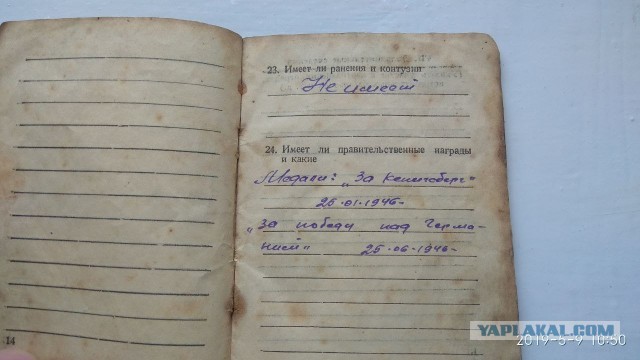 23. Имеет ли ранения и контузии
Не имеет
24. Имеет ли правительственные награды
и какие
Медали: „За Кенигсберг"
26.01.1946.
„За победу над Герма-
нией" 26.06.1946.
14
YAPLAKAL.COM
2019-5-9 10:50